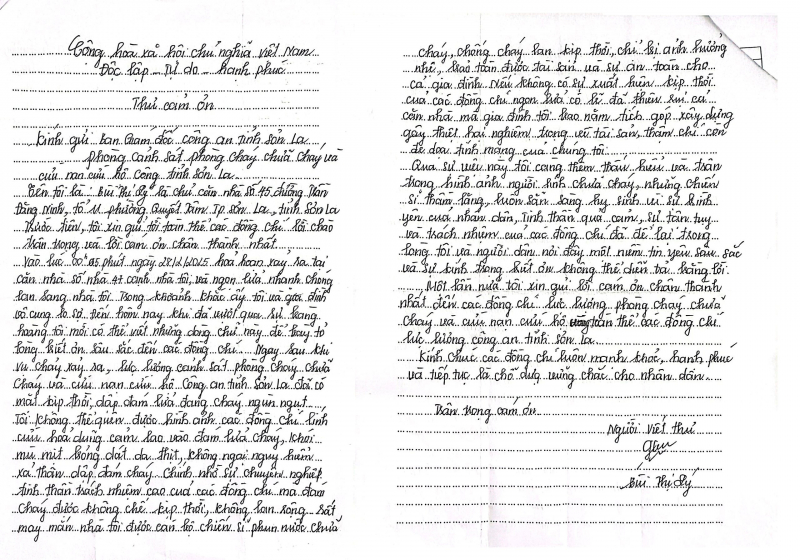 Cộng hoà xã hội chủ nghĩa Việt Nam
Độc lập - Tự do - hạnh phúc
Thư cảm ơn
Kính gửi Ban Giám đốc công an tỉnh Sơn La
phòng cảnh sát phòng cháy chữa cháy và
cứu nạn cứu hộ công tỉnh Sơn La
Tên tôi là: Bùi Thị Lý là chủ căn nhà số 45 đường Trần
Đăng Ninh, tổ 11 phường Quyết Tâm TP. Sơn La, tỉnh Sơn La
Trước tiên, tôi xin gửi tới toàn thể các đồng chí lời chào
trân trọng, và lời cảm ơn chân thành nhất
Vào lúc 00h05 phút ngày 28/2/2025 hoả hoạn xảy ra tại
căn nhà số nhà 47 cạnh nhà tôi, và ngọn lửa nhanh chóng
lan sang nhà tôi. Trong khoảnh khắc ấy tôi và gia đình
vô cùng lo sợ, đến hôm nay khi đã vượt qua sự bàng
hoàng tôi mới có thể viết những dòng chữ này để bày tỏ
lòng biết ơn sâu sắc đến các đồng chí. Ngay sau khi
vụ cháy xảy ra, lực lượng cảnh sát phòng cháy chữa
cháy và cứu nạn cứu hộ Công an tỉnh Sơn La đã có
mặt kịp thời, dập đám lửa đang cháy ngùn ngụt
Tôi không thể quên được hình ảnh các đồng chí lính
cứu hoả dũng cảm lao vào đám lửa cháy, khói
mù mịt bỏng dát da thịt, không ngại nguy hiểm
xả thân dập đám cháy chính nhờ sự chuyên nghiệp
tinh thần trách nhiệm cao của các đồng chí mà đám
cháy được khống chế kịp thời, không lan rộng rất
may mắn nhà tôi được cán bộ chiến sĩ phun nước chữa
cháy, chống cháy lan kịp thời, chỉ bị ảnh hưởng
nhẹ, bảo toàn được tài sản và sự an toàn cho
cả gia đình. Nếu không có sự xuất hiện kịp thời
của các đồng chí ngọn lửa có lẽ đã thiêu rụi cả
căn nhà mà gia đình tôi bao năm tích góp xây dựng
gây thiệt hại nghiêm trọng về tài sản, thậm chí còn
đe doạ tính mạng của chúng tôi.
Qua sự việc này tôi càng thêm thấu hiểu và trân
trọng hình ảnh người lính chữa cháy, những chiến
sĩ thầm lặng, luôn sẵn sàng hy sinh vì sự bình
yên của nhân dân, Tinh thần quả cảm, sự tận tuỵ
và trách nhiệm của các đồng chí đã để lại trong
lòng tôi và người dân nơi đây một niềm tin yêu sâu sắc
và sự kính trọng biết ơn không thể diễn tả bằng lời.
Một lần nữa tôi xin gửi lời cảm ơn chân thành
nhất đến các đồng chí lực lượng phòng cháy chữa
cháy và cứu nạn cứu hộ toàn thể các đồng chí
lực lượng công an tỉnh Sơn La.
Kính chúc các đồng chí luôn mạnh khoẻ, hạnh phúc
và tiếp tục là chỗ dựa vững chắc cho nhân dân
Trân trọng cảm ơn
Người viết thư
Bùi Thị Lý